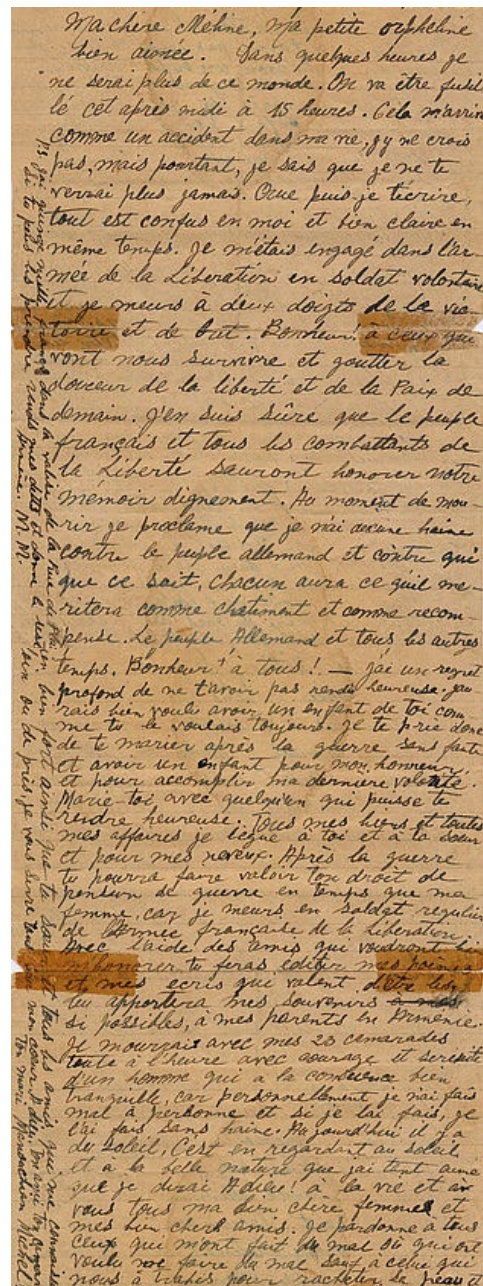 Ma chère Méline, ma petite orpheline
bien aimée. Dans quelques heures je
ne serai plus de ce monde. On va être fusil
lé cet après midi à 15 heures. Cela m'arrive
comme un accident dans ma vie, j'y ne crois
pas, mais pourtant, je sais que je ne te
verrai plus jamais. Que puis-je t'écrire,
tout est confus en moi et bien claire en
même temps. Je m'étais engagé dans l'ar-
mée de la Libération en soldat volontaire
et je meurs à deux doigts de la vic-
toire et de but. Bonheur! à ceux qui
vont nous survivre et goutter la
douceur de la liberté et de la Paix de
demain. J'en suis sûre que le peuple
français et tous les combattants de
la Liberté sauront honorer notre
mémoir dignement. Au moment de mou-
rir je proclame que je n'ai aucune haine
contre le peuple allemand et contre qui
que ce soit, chacun aura ce qu'il me-
ritera comme chatiment et comme recom-
pense. Le peuple Allemand et tous les autres
temps. Bonheur! à tous! — j'ai un regret
profond de ne t'avoir pas rendu heureuse. j'au-
rais bien voulu avoir un enfant de toi com
me tu le voulais toujours. Je te prie donc
de te marier après la guerre sans faute
et avoir un enfant pour mon honneur,
et pour accomplir ma dernière volonté.
Marie-toi avec quelqu'un qui puisse te
rendre heureuse. Tous mes biens et toutes
mes affaires je lègue à toi et à ta sœur
et pour mes neveux. Après la guerre
tu pourra faire valoir ton droit de
pension de guerre en temps que ma
femme, car je meurs en soldat regulier
de l'Armee française de la Libération.
Avec l'aide des amis qui voudront bien
m'honorer tu feras editer mes poèmes
et mes ecris qui valent d'être lus.
tu apportera mes souvenirs
si possibles, à mes parents en Arménie.
Je mourrais avec mes 23 camarades
toute à l'heure avec courage et serenité
d'un homme qui a la conscience bien
tranquille, car personnellement je n'ai fais
mal à personne et si je l'ai fais, je
l'ai fais sans haine. Aujourd'hui il y a
du soleil. C'est en regardant au soleil
et a la belle nature que j'ai tant aimé
que je dirai Adieu! à la vie et à
vous tous ma bien chère femme et
mes bien chers amis. Je pardonne à tous
ceux qui m'ont fait du mal où qui ont
voulu me faire du mal sauf à celui qui
nous a trahis pour racheter sa peau et
PS. J'ai quinze mille francs dans la valise de la Rue de Plai.
Si tu peus les prendre rends mes dettes et donne le
Arméne. M. M.
bien fort ainsi que ta sœur et tous les amis que me connaisse
loin ou de près, je vous serre tous sur mon cœur. Adieu. Ton ami Ton camarade
Ton mari Manouchian Michel